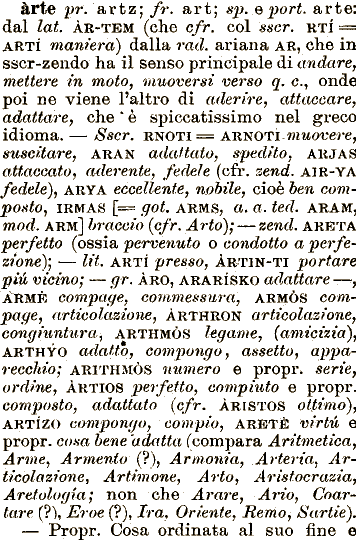 àrte pr. artz; fr. art; sp. e port. arte:
dal lat. ÀR-TEM (che cfr. col sscr. RTÍ =
ARTÍ maniera) dalla rad. ariana AR, che in
sscr-zendo ha il senso principale di andare,
mettere in moto, muoversi verso q. c., onde
poi ne viene l'altro di aderire, attaccare,
adattare, che è spiccatissimo nel greco
idioma. — Sscr. RNOTI = ARNOTI muovere,
suscitare, ARAN adattato, spedito, ARJAS
attaccato, aderente, fedele (cfr. zend. AIR-YA
fedele), ARYA eccellente, nobile, cioè ben com-
posto, IRMAS [= got. ARMS, a. a. ted. ARAM,
mod. ARM] braccio (cfr. Arto); — zend. ARETA
perfetto (ossia pervenuto o condotto a perfe-
zione); — lit. ARTÍ presso, ÀRTIN-TI portare
piú vicino; — gr. ÀRO, ARARÍSKO adattare —,
ARMÊ compage, commessura, ARMÒS com-
page, articolazione, ÀRTHRON articolazione,
congiuntura, ARTHMÒS legame, (amicizia),
ARTHYO adatto, compongo, assetto, appa-
recchio; ARITHMÒS numero e propr. serie,
ordine, ÀRTIOS perfetto, compiuto e propr.
composto, adattato (cfr. ÀRISTOS ottimo),
ARTÍZO compongo, compio, ARETÊ virtú e
propr. cosa bene adatta (compara Aritmetica,
Arme, Armento (?), Armonia, Arteria, Ar-
ticolazione, Artimone, Arto, Aristocrazia,
Aretología; non che Arare, Ario, Coar-
tare (?), Eroe (?), Ira, Oriente, Remo, Sartie).
— Propr. Cosa ordinata al suo fine e